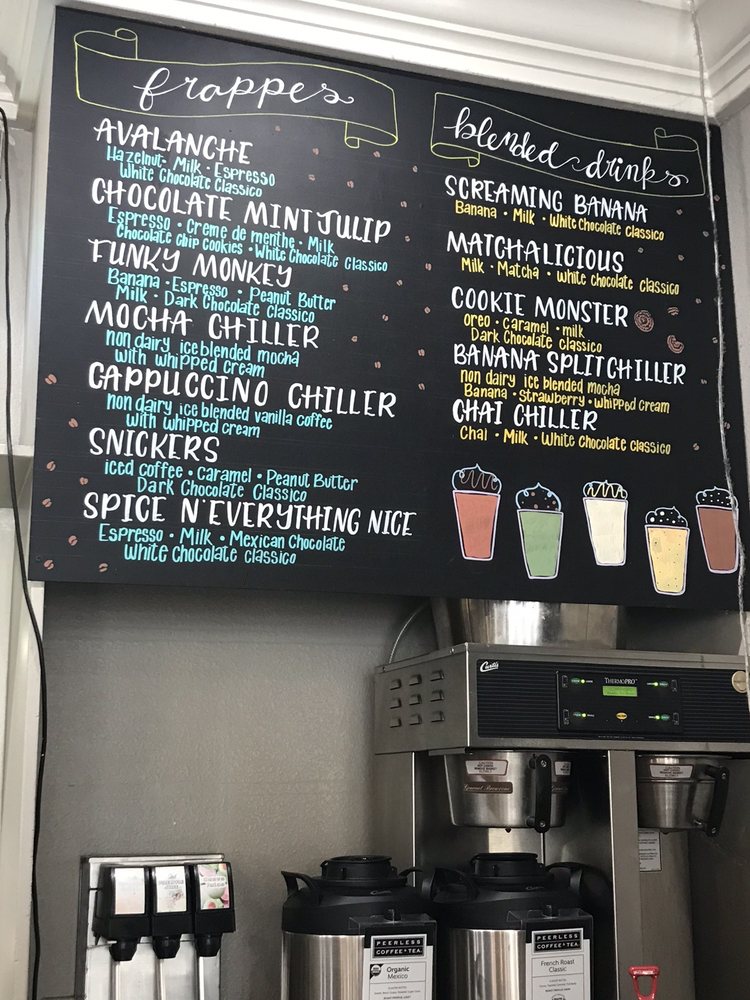 frappes
AVALANCHE
Hazelnut · Milk · Espresso
White Chocolate Classico
CHOCOLATE MINT JULIP
Espresso · Creme de menthe · Milk
Chocolate chip cookies · White Chocolate Classico
FUNKY MONKEY
Banana · Espresso · Peanut Butter
Milk · Dark Chocolate Classico
MOCHA CHILLER
non dairy ice blended mocha
with whipped cream
CAPPUCCINO CHILLER
non dairy ice blended vanilla coffee
with whipped cream
SNICKERS
iced coffee · Caramel · Peanut Butter
Dark Chocolate Classico
SPICE N EVERYTHING NICE
Espresso · Milk · Mexican Chocolate
White chocolate classico
blended drinks
SCREAMING BANANA
Banana · Milk · White Chocolate classico
MATCHALICIOUS
Milk · Matcha · White chocolate classico
COOKIE MONSTER
Oreo · Caramel · milk
Dark Chocolate Classico
BANANA SPLIT CHILLER
non dairy ice blended mocha
Banana · Strawberry · Whipped cream
CHAI CHILLER
Chai · Milk · White Chocolate classico
Curtis
THERMOPRO
PEERLESS
COFFEE & TEA
Organic
Mexico
PEERLESS
COFFEE & TEA
French Roast
Classic